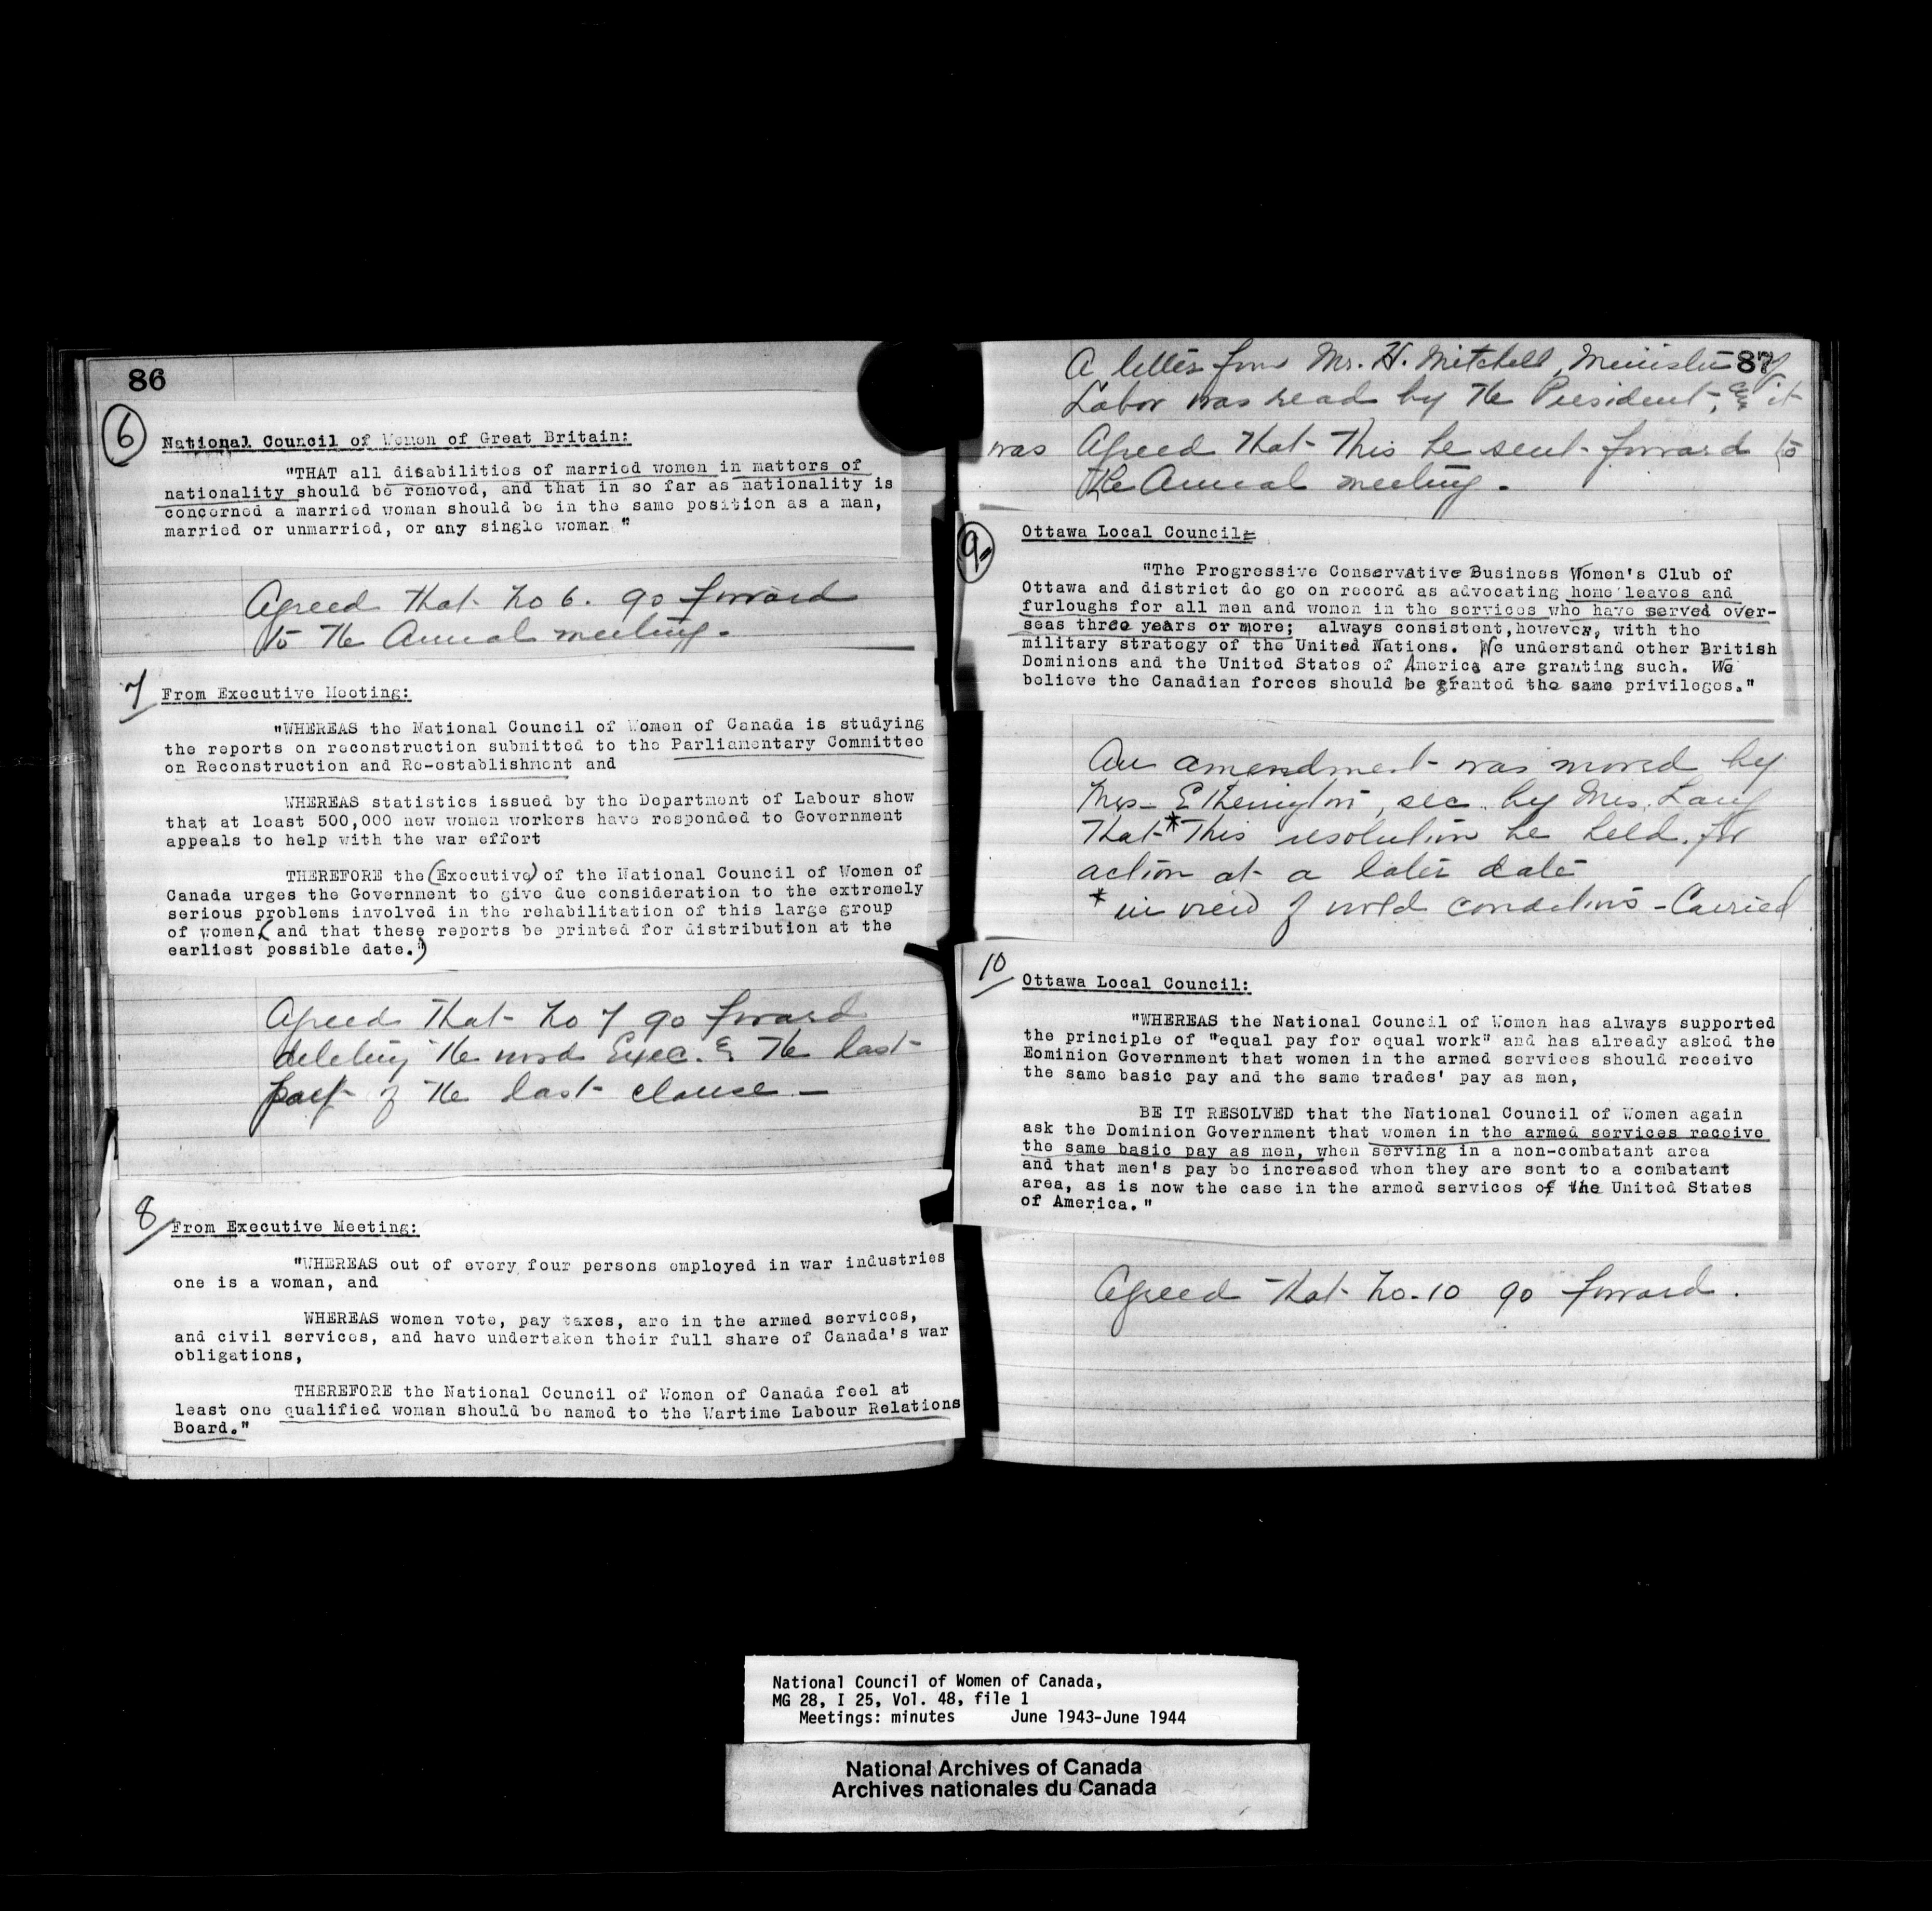 86
6
National Council of Women of Great Britain:
"THAT all disabilities of married women in matters of
nationality should be removed, and that in so far as nationality is
concerned a married woman should be in the same position as a man,
married or unmarried, or any single woman."
Agreed that no 6. go forward
to the Annual meeting.
7
From Executive Meeting:
"WHEREAS the National Council of Women of Canada is studying
the reports on reconstruction submitted to the Parliamentary Committee
on Reconstruction and Re-establishment and
WHEREAS statistics issued by the Department of Labour show
that at least 500,000 new women workers have responded to Government
appeals to help with the war effort
THEREFORE the (Executive) of the National Council of Women of
Canada urges the Government to give due consideration to the extremely
serious problems involved in the rehabilitation of this large group
of women, (and that these reports be printed for distribution at the
earliest possible date.")
Agreed that no 7 go forward
deleting the word Exec. & the last
part of the last clause —
8
From Executive Meeting:
"WHEREAS out of every four persons employed in war industries
one is a woman, and
WHEREAS women vote, pay taxes, are in the armed services,
and civil services, and have undertaken their full share of Canada's war
obligations,
THEREFORE the National Council of Women of Canada feel at
least one qualified woman should be named to the Wartime Labour Relations
Board."
87
A letter from Mr. H. Mitchell, Minister of
Labor was read by the President, & it
was Agreed that this be sent forward to
the Annual meeting.
9.
Ottawa Local Council:
"The Progressive Conservative Business Women's Club of
Ottawa and district do go on record as advocating home leaves and
furloughs for all men and women in the services who have served over-
seas three years or more; always consistent, however, with the
military strategy of the United Nations. We understand other British
Dominions and the United States of America are granting such. We
believe the Canadian forces should be granted the same privileges."
An amendment was moved by
Mrs. Etherington, sec. by Mrs. Lang
that * this resolution be held for
action at a later date
* in view of world conditions - Carried
10
Ottawa Local Council:
"WHEREAS the National Council of Women has always supported
the principle of "equal pay for equal work" and has already asked the
Eominion Government that women in the armed services should receive
the same basic pay and the same trades' pay as men,
BE IT RESOLVED that the National Council of Women again
ask the Dominion Government that women in the armed services receive
the same basic pay as men, when serving in a non-combatant area
and that men's pay be increased when they are sent to a combatant
area, as is now the case in the armed services of the United States
of America."
Agreed that no. 10 go forward.
National Council of Women of Canada,
MG 28, I 25, Vol. 48, file 1
Meetings: minutes June 1943-June 1944
National Archives of Canada
Archives nationales du Canada